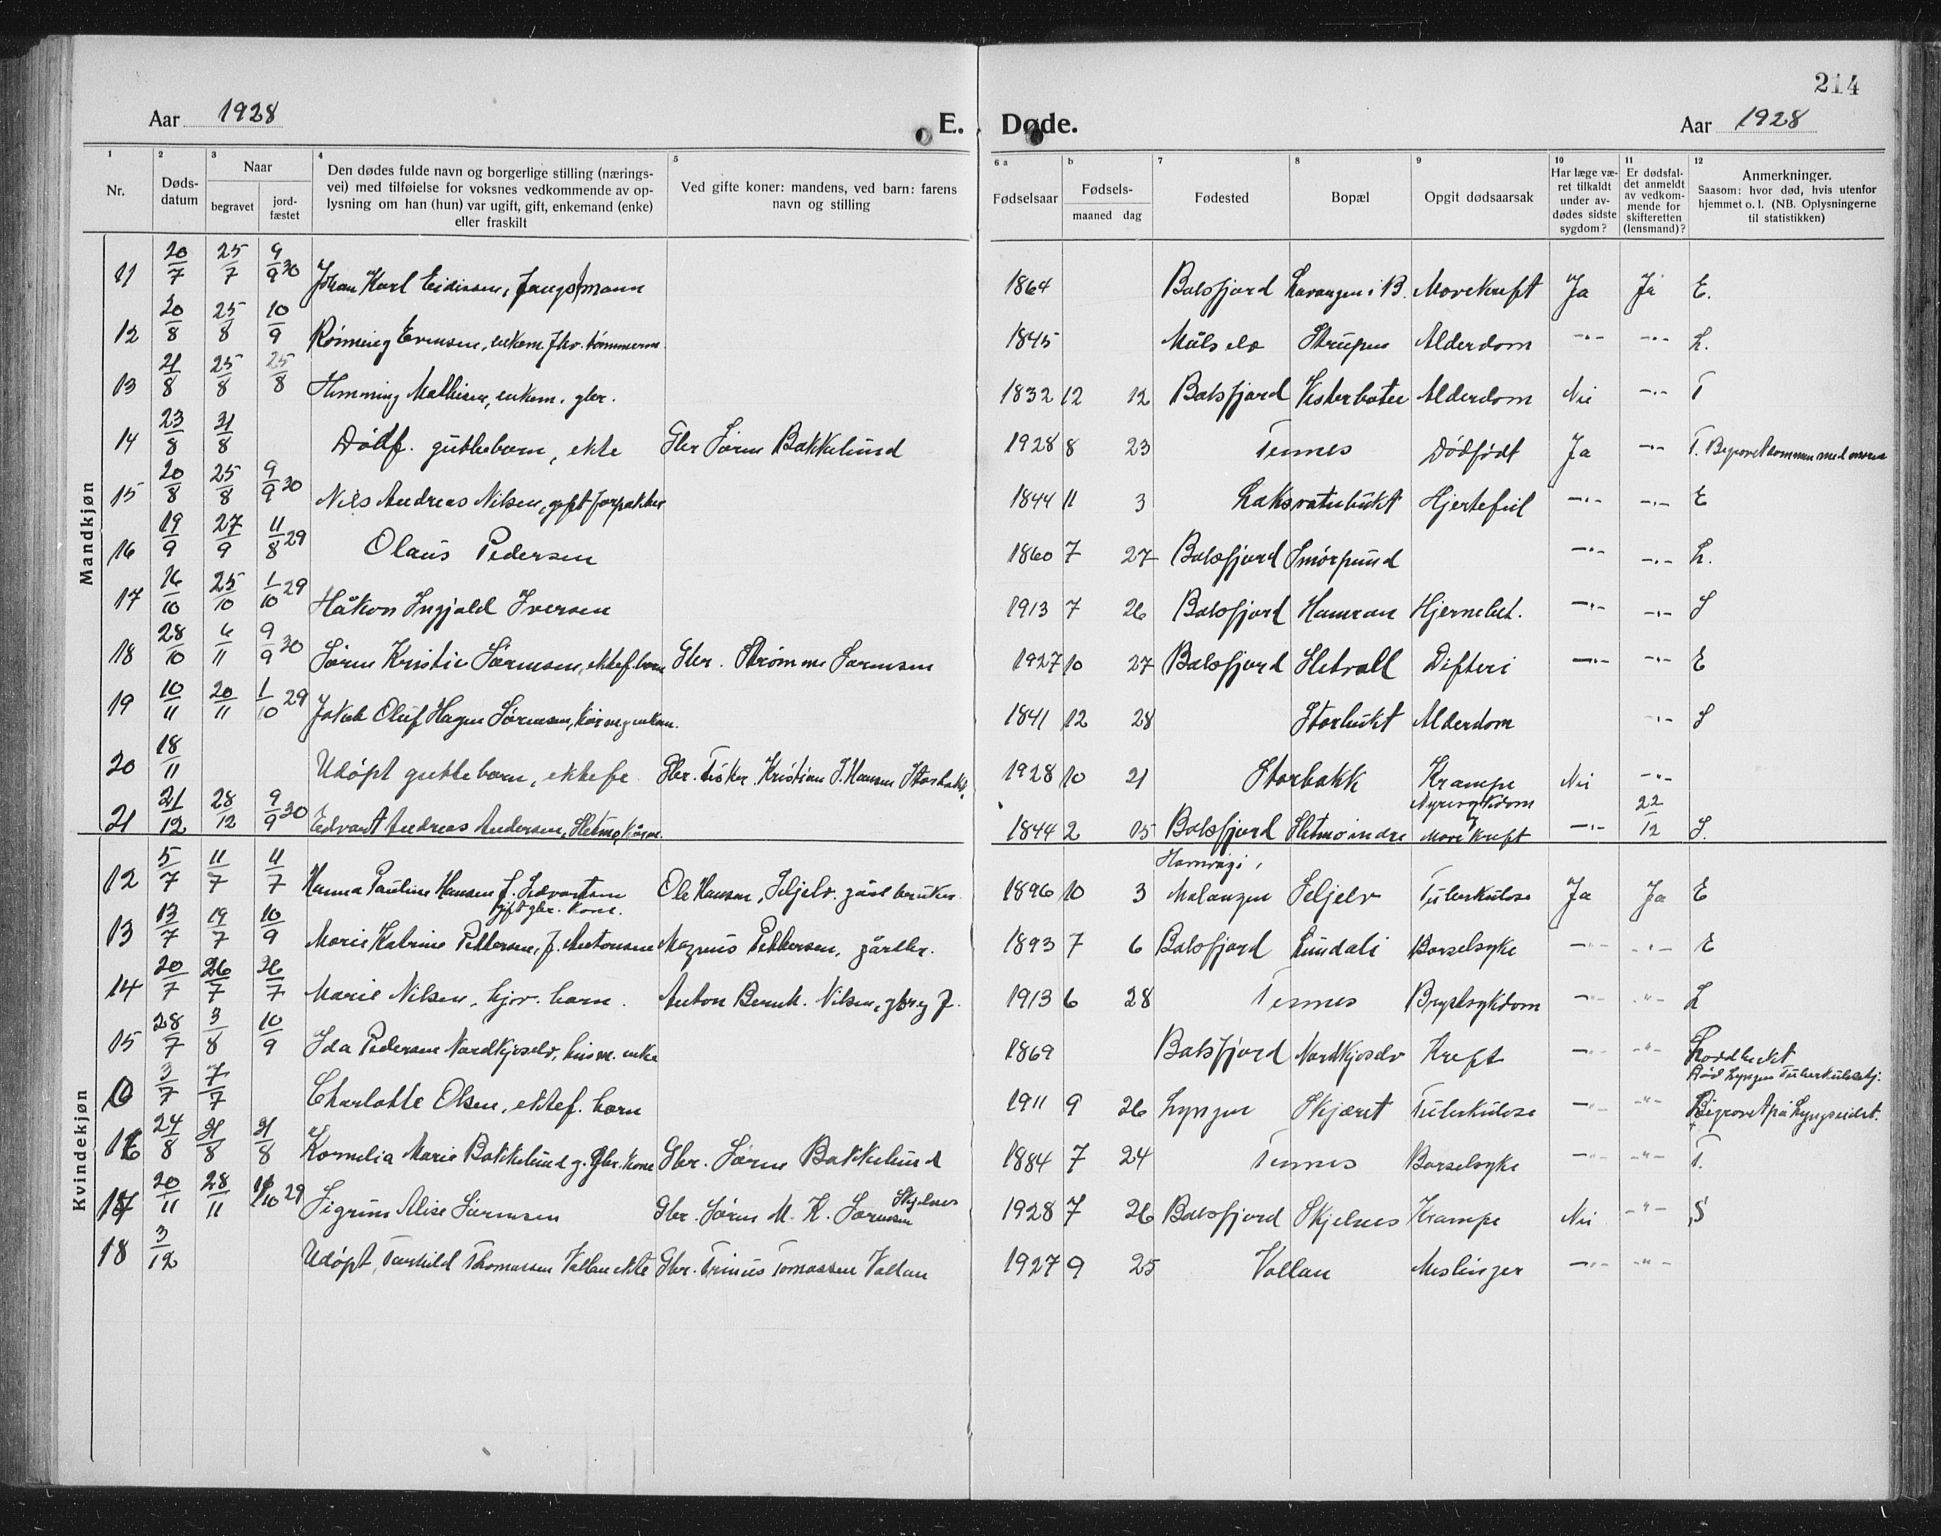 214
Aar 1928 E. Døde. Aar 1928
1 2 3 4 5 6 a b 7 8 9 10 11 12
Nr. Døds-datum Naar begravet jord-fæstet
Den dødes fulde navn og borgerlige stilling (nærings-
vei) med tilføielse for voksnes vedkommende av op-
lysning om han (hun) var ugift, gift, enkemand (enke)
eller fraskilt
Ved gifte koner: mandens, ved barn: farens
navn og stilling
Fødselsaar Fødsels- maaned dag
Fødested Bopæl Opgit dødsaarsak
Har læge væ-
ret tilkaldt
under av-
dødes sidste
sygdom?
Er dødsfal-
det anmeldt
av vedkom-
mende for
skifteretten
(lensmand)?
Anmerkninger.
Saasom: hvor død, hvis utenfor
hjemmet o. l. (NB. Oplysningerne
til statistikken)
Mandkjøn
11 20/7 25/7 9/9 30 Johan Karl Eidissen, 1864 Balsfjord Lavangen i B. Mavekreft Ja Ja E.
12 20/8 25/8 10/9 Rønning Evensen, enkem. 1845 Målselv Strupen Alderdom -"- -"- L.
13 21/8 25/8 25/8 Hemming Mathisen, enkem. gbr. 1832 12 12 Balsfjord Alderdom Nei -"- T
14 23/8 31/8 Dødf. guttebarn, ekte Gbr Søren Bakkelund 1928 8 23 Tennes Dødfødt Ja -"- T. Begravet sammen med moren
15 20/8 25/8 9/9 30 Nils Andreas Nilsen, gift forpakter 1844 11 3 Laksvatnbukt Hjertefeil -"- -"- E
16 19/9 27/9 11/8 29 Olaus Pedersen 1860 7 27 Balsfjord Smørsund -"- -"- L.
17 16/10 25/10 1/10 29 Håkon Ingjald Iversen 1913 7 26 Balsfjord Hamran Hjernebet. -"- -"- S
18 28/10 6/11 9/9 30 Søren Kristie Sørensen, ektef. barn Gbr. Strømme Sørensen 1927 10 27 Balsfjord Sletvall Difteri -"- -"- E
19 10/11 20/11 1/10 29 Jakob Oluf Hagen Sørensen, 1841 12 28 Storbukt Alderdom -"- S
20 18/11 Udøpt guttebarn, ektefø Gbr. Fisker. Kristian J. Hansen Storbakk, 1928 10 21 Storbakk Krampe Nei -"-
21 21/12 28/12 9/9 30 Edvart Andreas Andersen, Sletmo, 1844 2 15 Balsfjord Sletmo indre Nyresykdom Mavekreft -"- 22/12 S.
Kvindekjøn
12 5/7 11/7 11/7 Hanna Pauline Hansen f. Edvartsen gift gbr. kone. Ole Hansen, Seljelv. gårdbruker 1896 10 3 Malangen Seljelv Tuberkulose Ja Ja E
13 13/7 19/7 10/9 Marie Katrine Pettersen, f. Antonsen Magnus Pettersen, gårdbr. 1893 7 6 Balsfjord Lundali Barselsyke -"- -"- E
14 20/7 26/7 26/7 Marie Nilsen, barn. Anton Bernh. Nilsen, gbr og f. 1913 6 28 Tennes Brystsykdom -"- -"- L
15 28/7 3/8 10/9 Ida Pedersen Nordkjoselv, husm. enke 1869 Balsfjord Nordkjoselv Kreft -"- -"-
0 3/7 7/7 Charlotte Olsen, ektef. barn 1911 9 26 Lyngen Skjæret Tuberkulose -"- -"- Død Lyngen Tuberkulosehj. Begravet på Lyngseidet.
16 24/8 31/8 31/8 Kornelia Marie Bakkelund g. gbr. kone Gbr. Søren Bakkelund 1884 7 24 Tennes Barselsyke -"- -"- T.
17 20/11 28/11 1/10 29 Sigrun Alise Sørensen Gbr. Søren M. K. Sørensen Skjelnes 1928 7 26 Balsfjord Skjelnes Krampe Nei -"- S
18 3/12 Udøpt, Thomassen Vollan ekte Gbr. Trinius Tomassen Vollan 1927 9 25 Vollan Meslinger -"- -"-